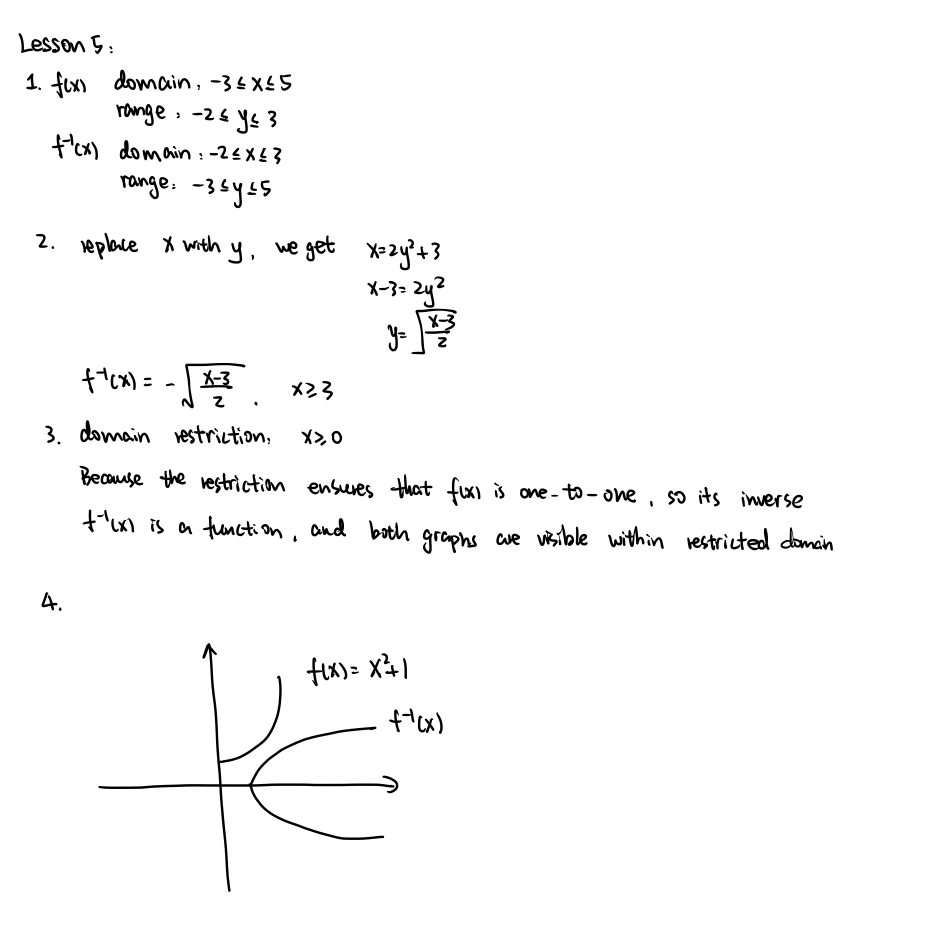 Lesson 5:
1. f(x) domain: -3≤x≤5
range: -2≤y≤3
f⁻¹(x) domain: -2≤x≤3
range: -3≤y≤5
2. replace x with y, we get x=2y²+3
x-3=2y²
y=√((x-3)/2)
f⁻¹(x) = -√((x-3)/2). x≥3
3. domain restriction, x≥0
Because the restriction ensures that f(x) is one-to-one, so its inverse
f⁻¹(x) is a function, and both graphs are visible within restricted domain
4.
f(x)=x²+1
f⁻¹(x)